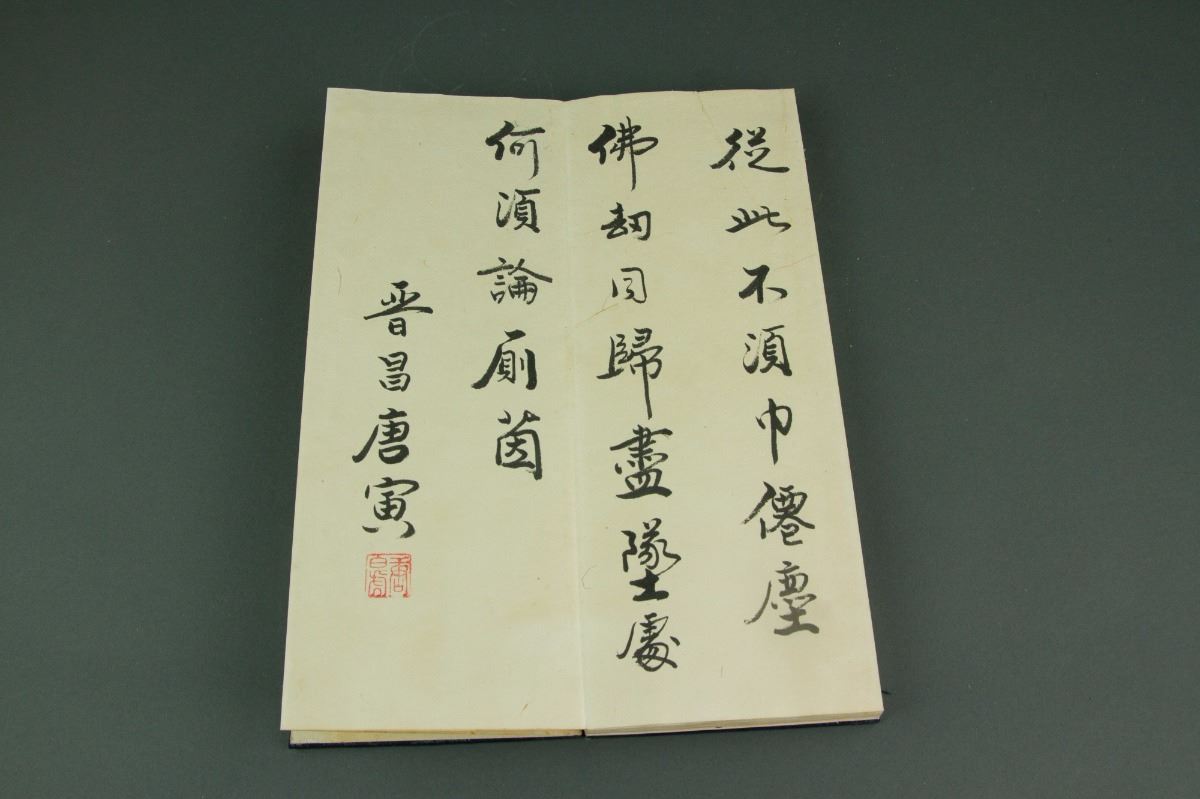 從此不須巾僊塵
佛劫同歸盡墬處
何須論廁茵
晋昌唐寅